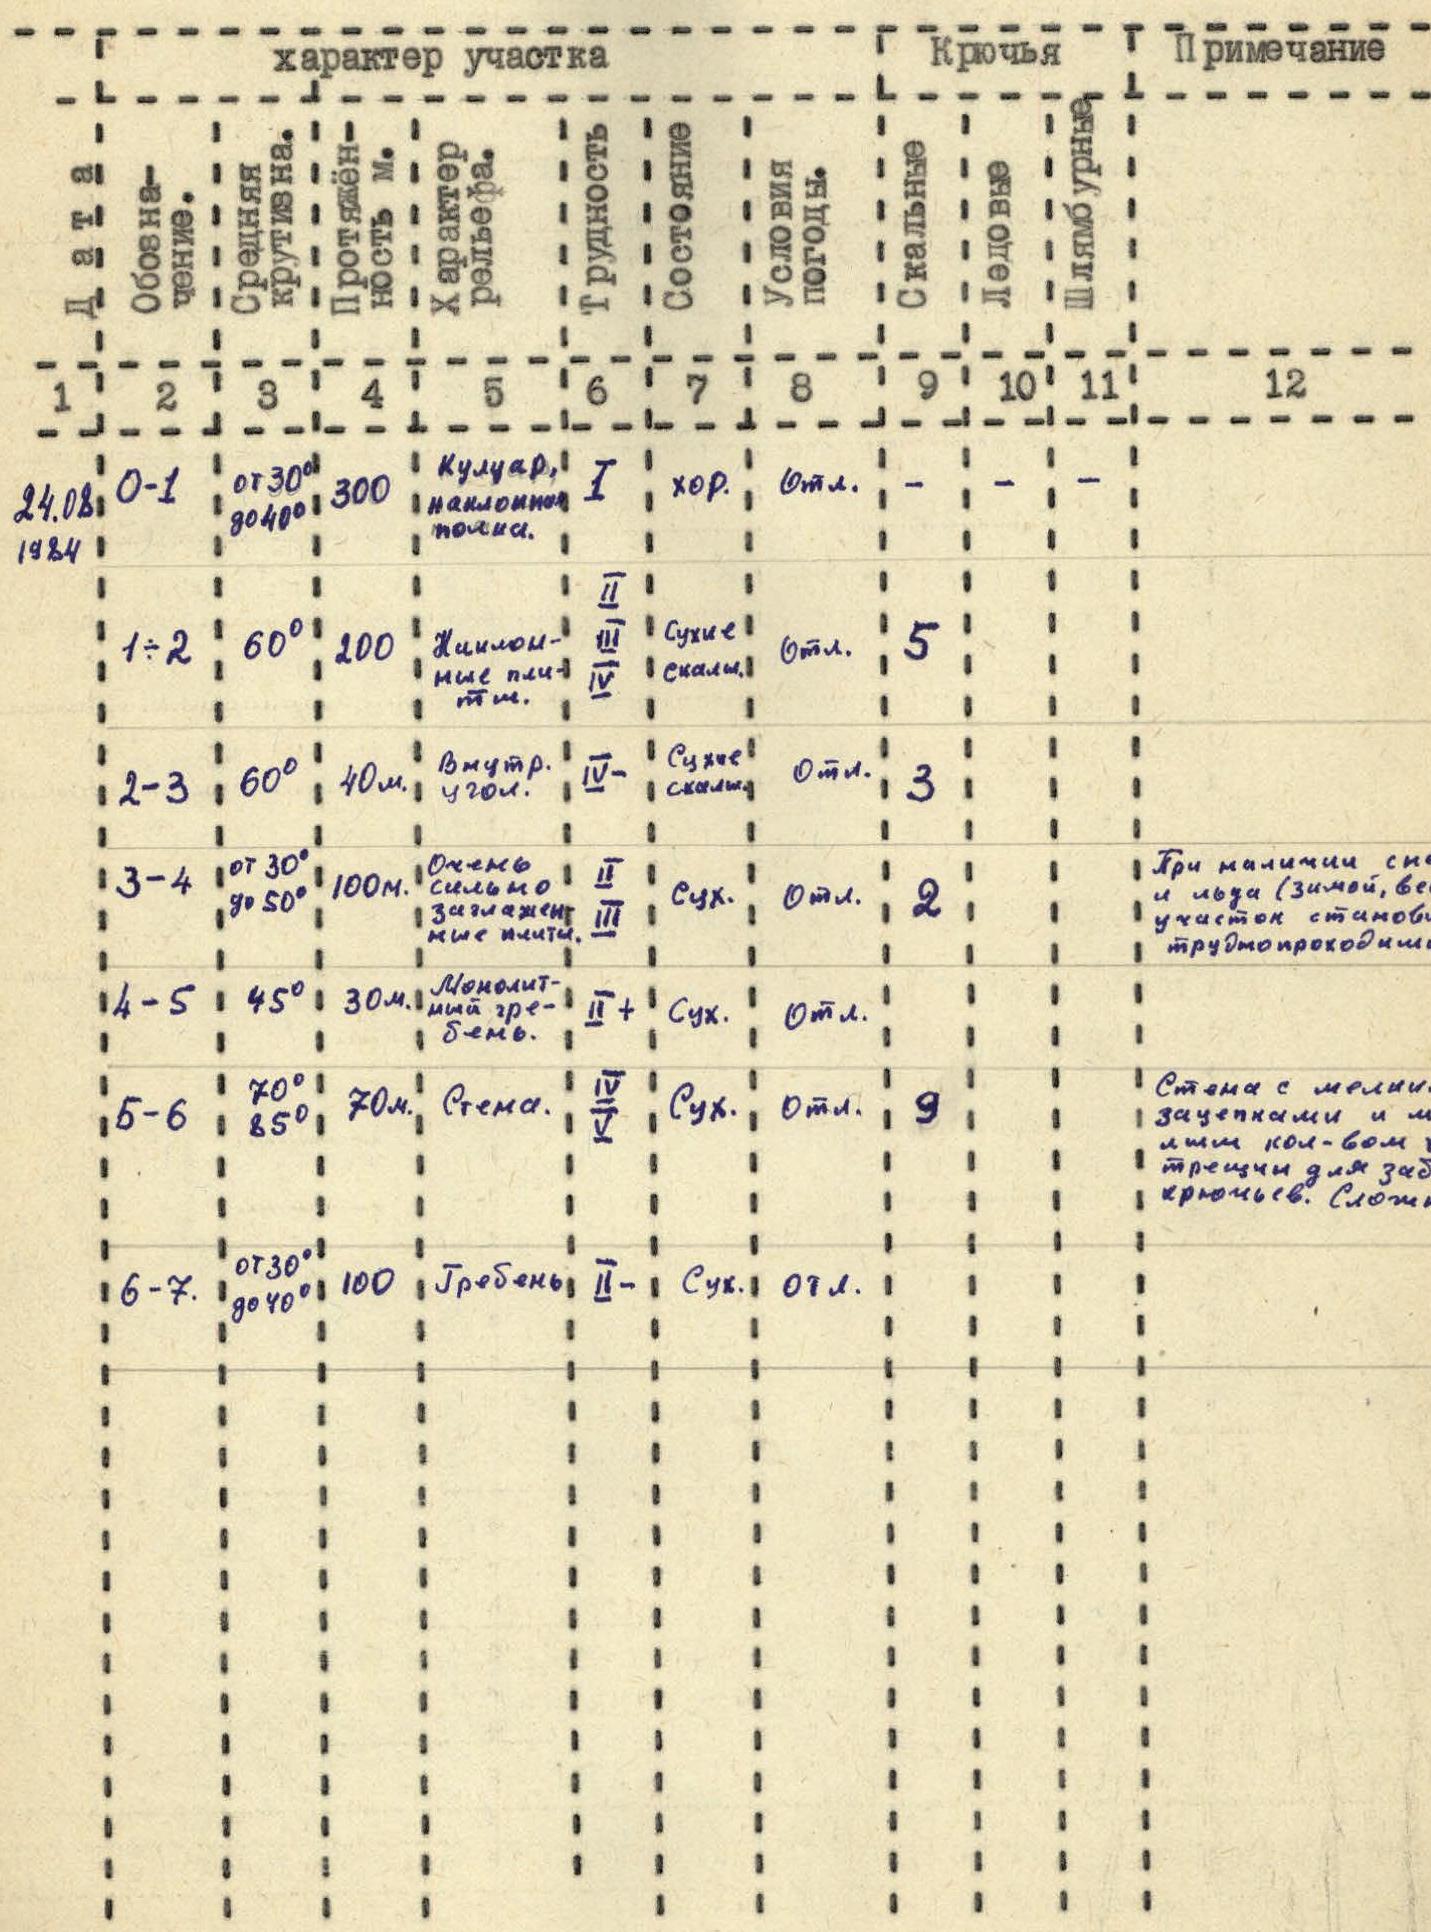 характер участка Крючья Примечание
Дата
Обозна-
чение.
Средняя
крутизна.
Протяжён-
ность м.
Характер
рельефа.
Трудность
Состояние
Условия
погоды.
Скальные
Ледовые
Шлямбурные
1 2 3 4 5 6 7 8 9 10 11 12
24.08
1984
0-1
от 30°
до 40°
300
Кулуар,
наклонная
полка.
I
хор.
Отл.
- - -
1÷2
60°
200
Наклон-
ные пли-
ты.
II
III
IV
Сухие
скалы.
Отл.
5
2-3
60°
40м.
Внутр.
угол.
IV-
Сухие
скалы.
Отл.
3
3-4
от 30°
до 50°
100м.
Очень
сильно
заглажен-
ные плиты.
II
III
Сух.
Отл.
2
При наличии сне
и льда (зимой, вес
участок станови
труднопроходимы
4-5
45°
30м.
Монолит-
ный гре-
бень.
II+
Сух.
Отл.
5-6
70°
85°
70м.
Стена.
IV
V
Сух.
Отл.
9
Стена с мелки
зацепками и м
лым кол-вом
трещин для заб
крючьев. Сложн
6-7.
от 30°
до 40°
100
Гребень
II-
Сух.
отл.